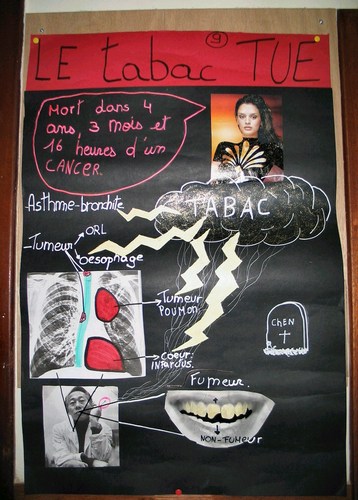 LE tabac TUE
9
Mort dans 4
ans, 3 mois et
16 heures d'un
CANCER.
TABAC
Asthme-bronchite
-Tumeur
ORL
Oesophage
Tumeur
POUMON
Coeur:
INFARCTUS.
CHEN
Fumeur.
NON-FUMEUR